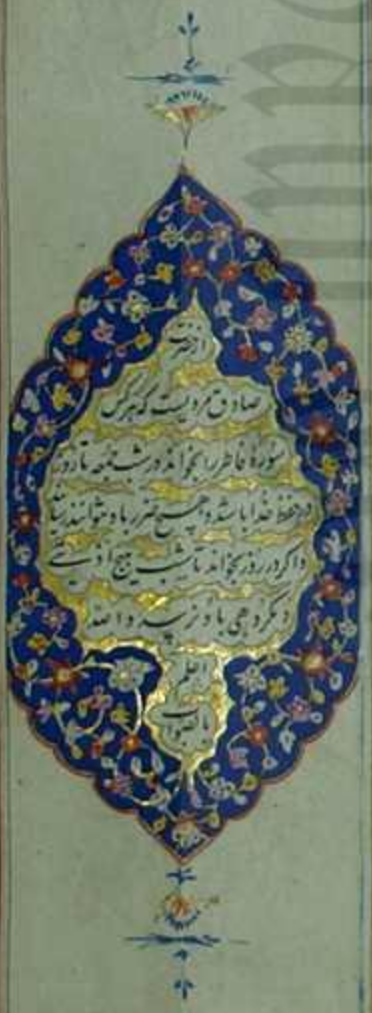 از حضرت
صادق مرویست که هرکس
سورۀ فاطر را بخواند در شب جمعه تا روز
در حفظ خدا باشد و هیچ ضرر باو نتوانند
و اگر در روز بخواند تا شب هیچ اذیتی
و مکروهی باو نرسد و الله
اعلم
بالصواب